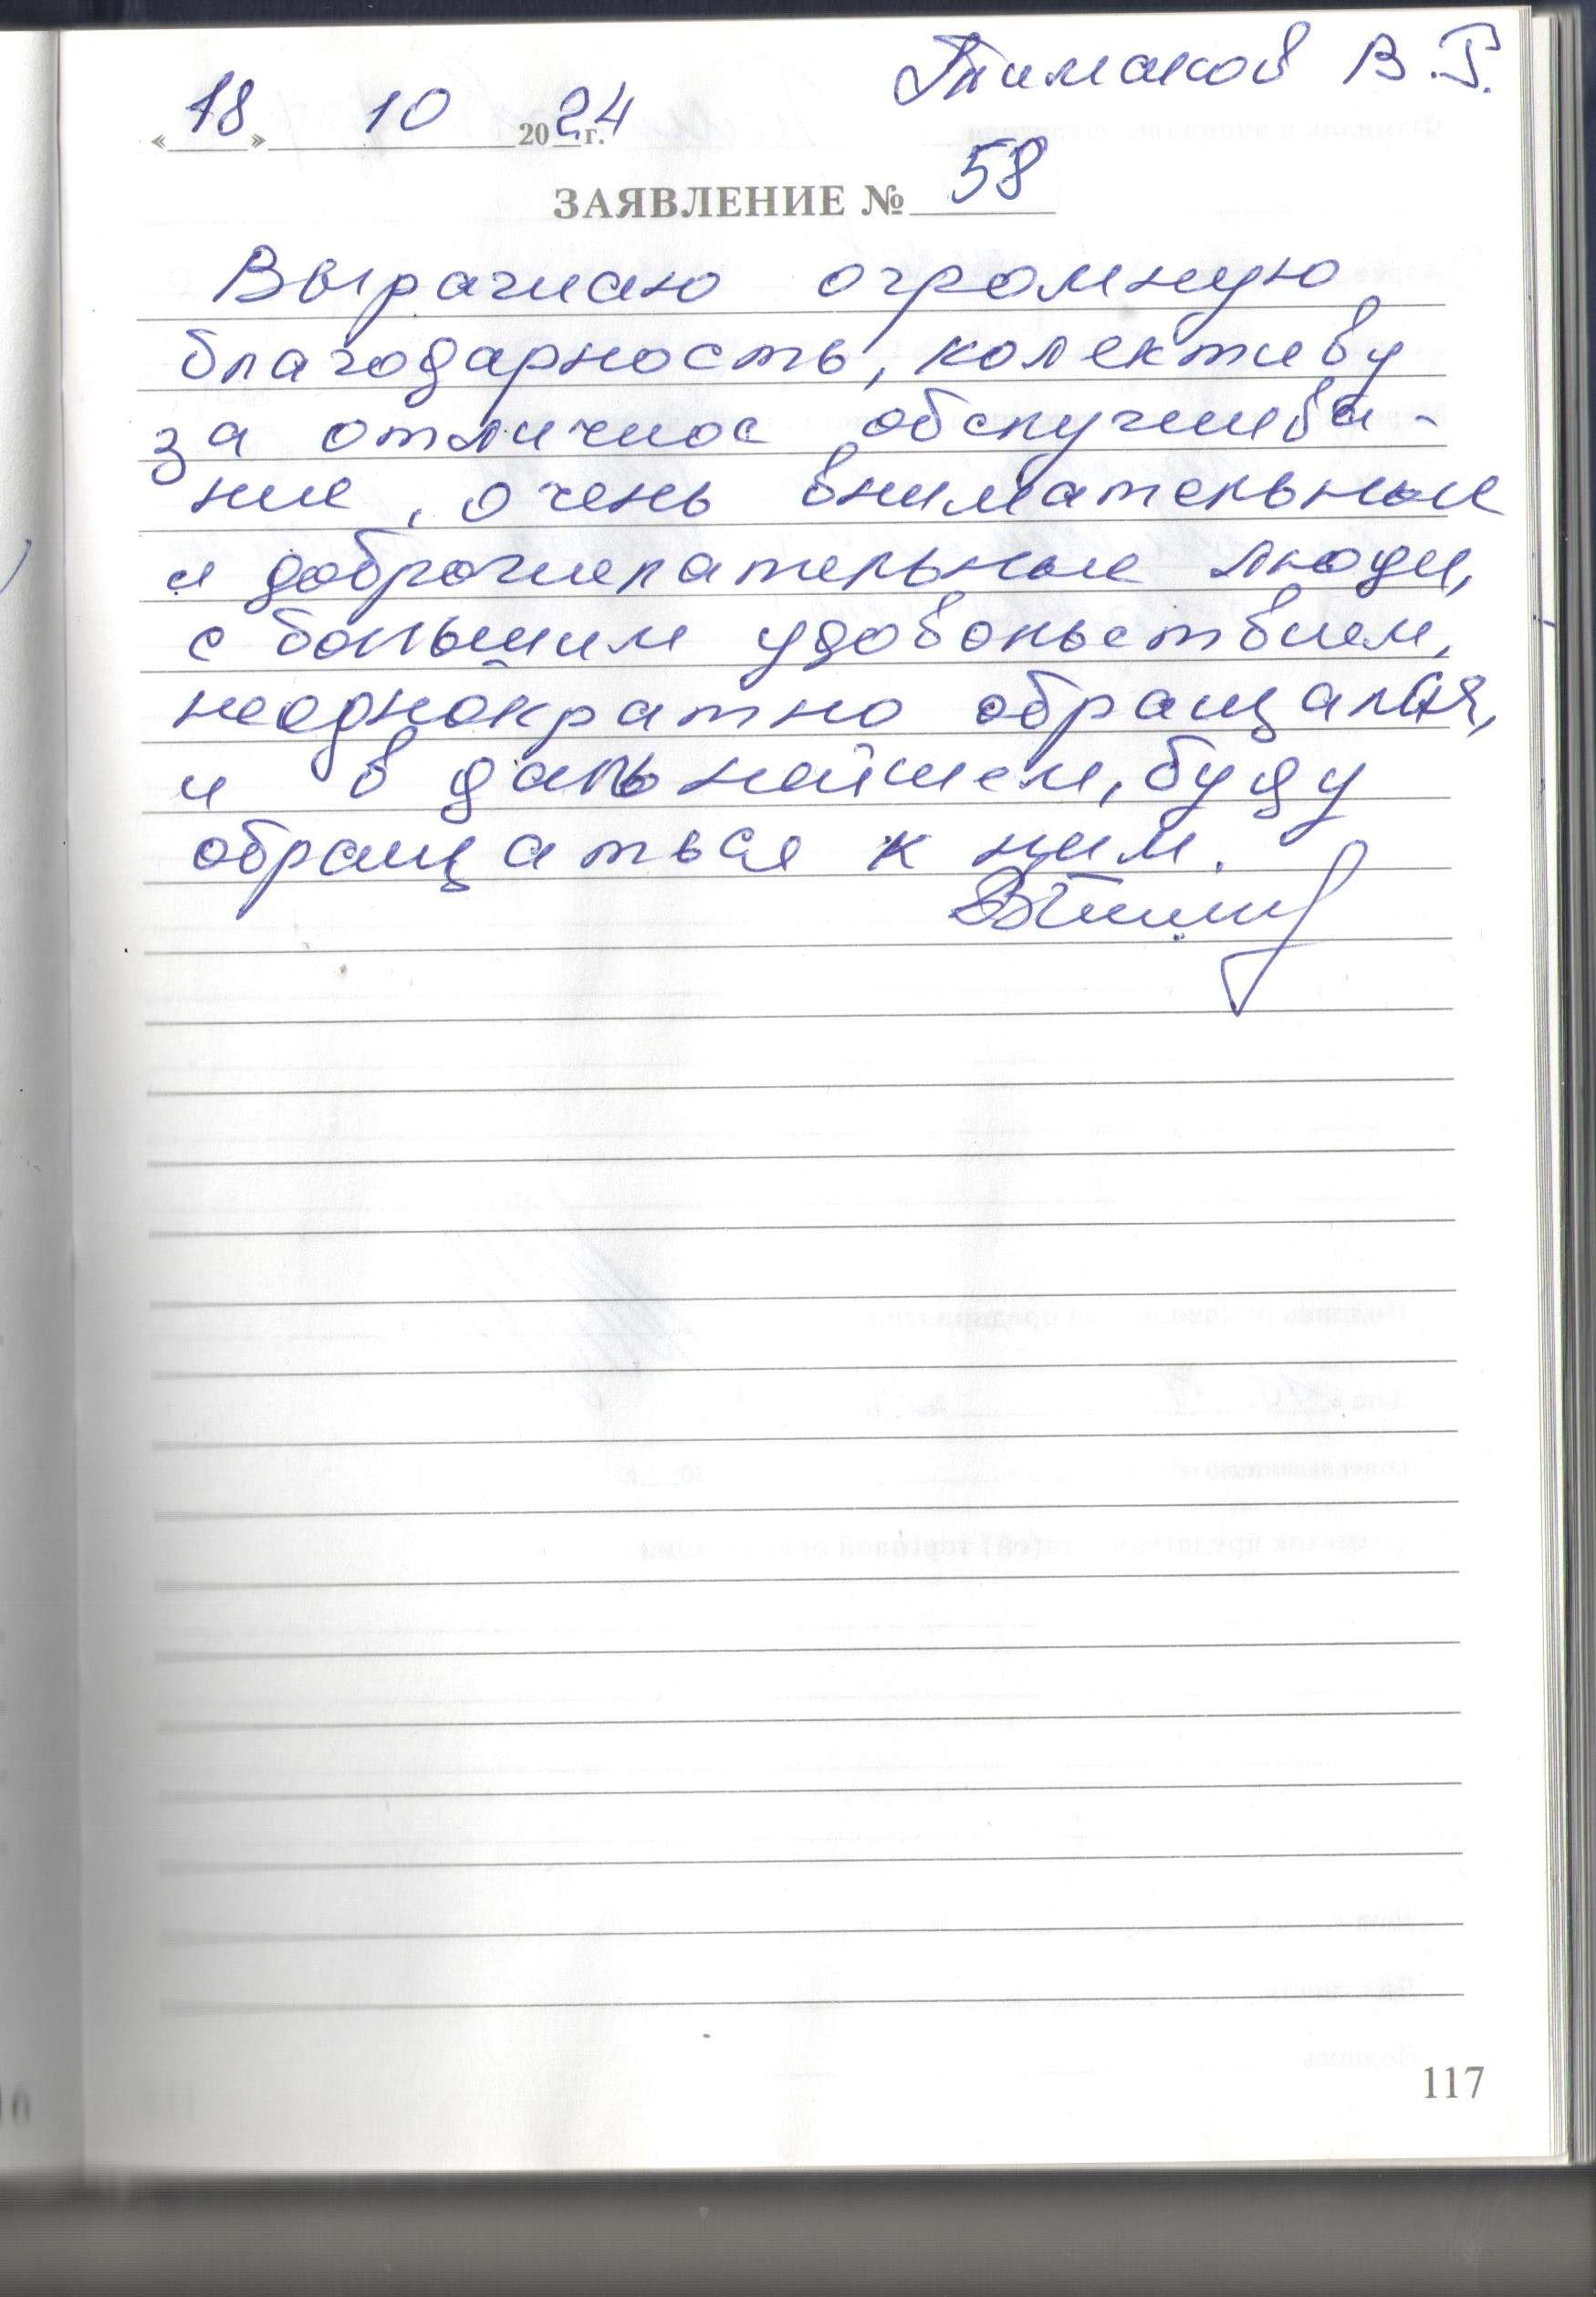 Тимаков В.Г.
«18» 10 2024 г.
ЗАЯВЛЕНИЕ № 58
Выражаю огромную
благодарность, колективу
за отличное обслужива-
ние, очень внимательные
и доброжелательные люди,
с большим удовольствием,
неоднократно обращался,
и в дальнейшем, буду
обращаться к ним.
117